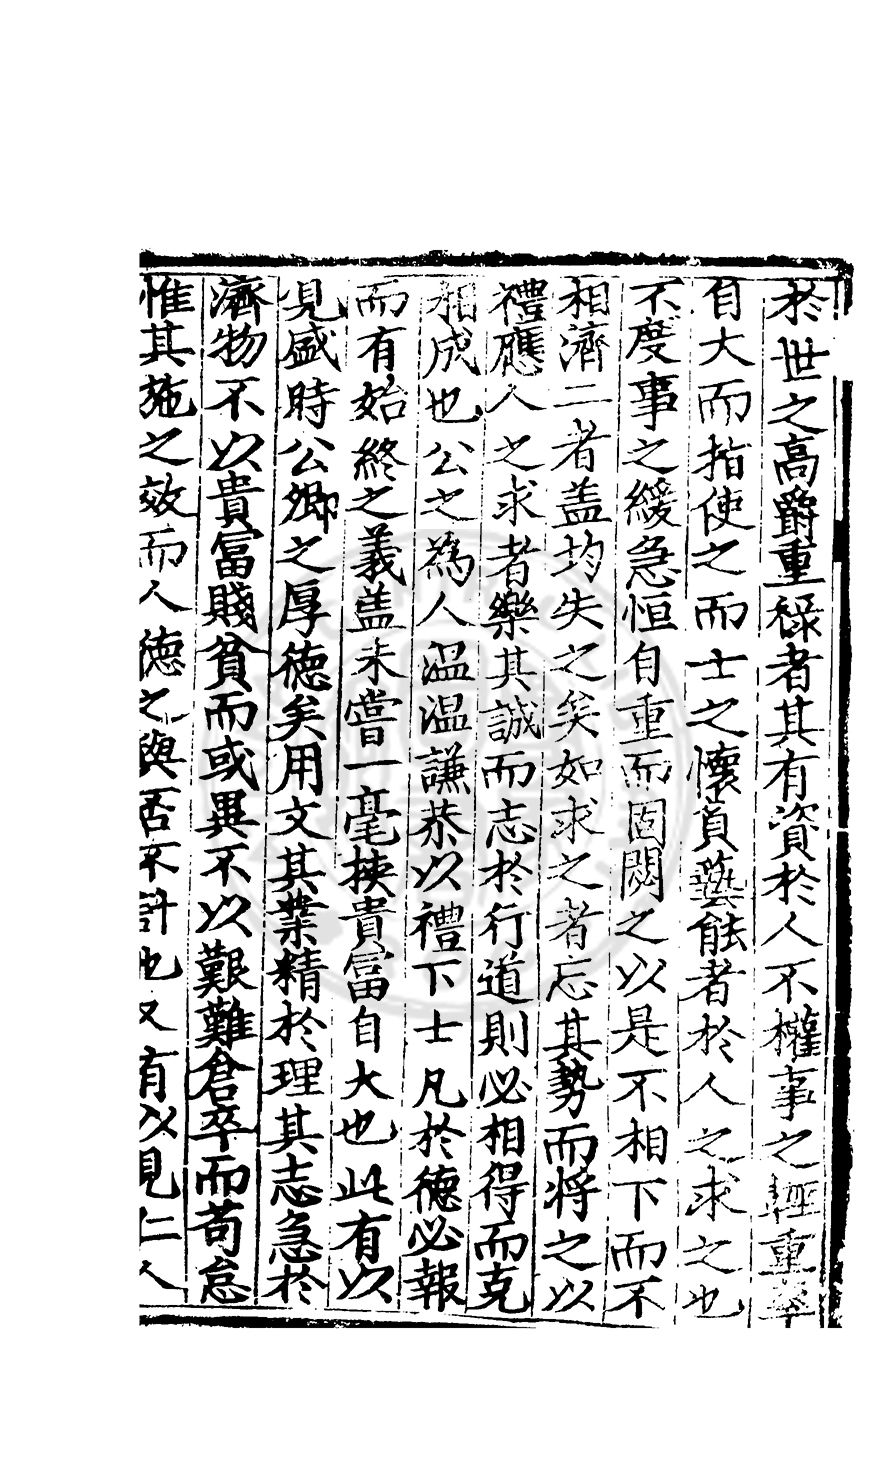 於世之高爵重祿者其有資於人不權事之輕重率
自大而指使之而士之懷負藝能者於人之求之也
不度事之緩急恒自重而固閟之以是不相下而不
相濟二者盖均失之矣如求之者忘其勢而將之以
禮應人之求者樂其誠而志於行道則必相得而克
相成也公之為人温温謙恭以禮下士凡於德必報
而有始終之義盖未嘗一毫挾貴冨自大也此有以
見盛時公卿之厚德矣用文其業精於理其志急於
濟物不以貴冨賤貧而或異不以艱難倉卒而苟怠
惟其施之效而人德之與否不計也又有以見仁人